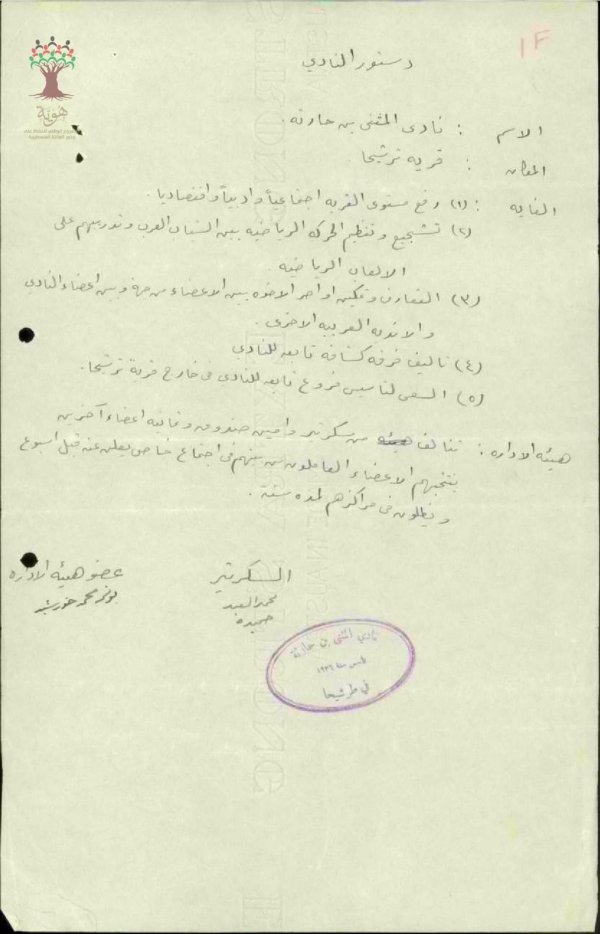 1F
هوية
دستور النادي
الاسم : نادى المثنى بن حارثه.
المكان : قرية ترشيحا.
الغايه : (١) رفع مستوى القريه اجتماعياً وادبياً واقتصاديا.
(٢) تشجيع وتنظيم الحركه الرياضيه بين الشبان العرب وتدريبهم على
الالعاب الرياضيه.
(٣) التعارف وتمكين اواصر الاخوه بين الاعضاء من جهة وبين اعضاء النادى
والانديه العربيه الاخرى.
(٤) تاليف فرقه كشافه تابعه للنادي
(٥) السعى لتاسيس فروع تابعه للنادي فى خارج قرية ترشيحا.
هيئه الاداره : تتالف هيئه من سكرتير وامين صندوق وثمانيه اعضاء آخرين
ينتخبهم الاعضاء العاملون من بينهم فى اجتماع خاص يعلن عنه قبل اسبوع
ويظلون فى مراكزهم لمدة سنة.
السكرتير
محمد العبد
حميده
عضو هيئه الاداره
محمد خورشيد
نادي المثنى بن حارثة
في طرشيحا